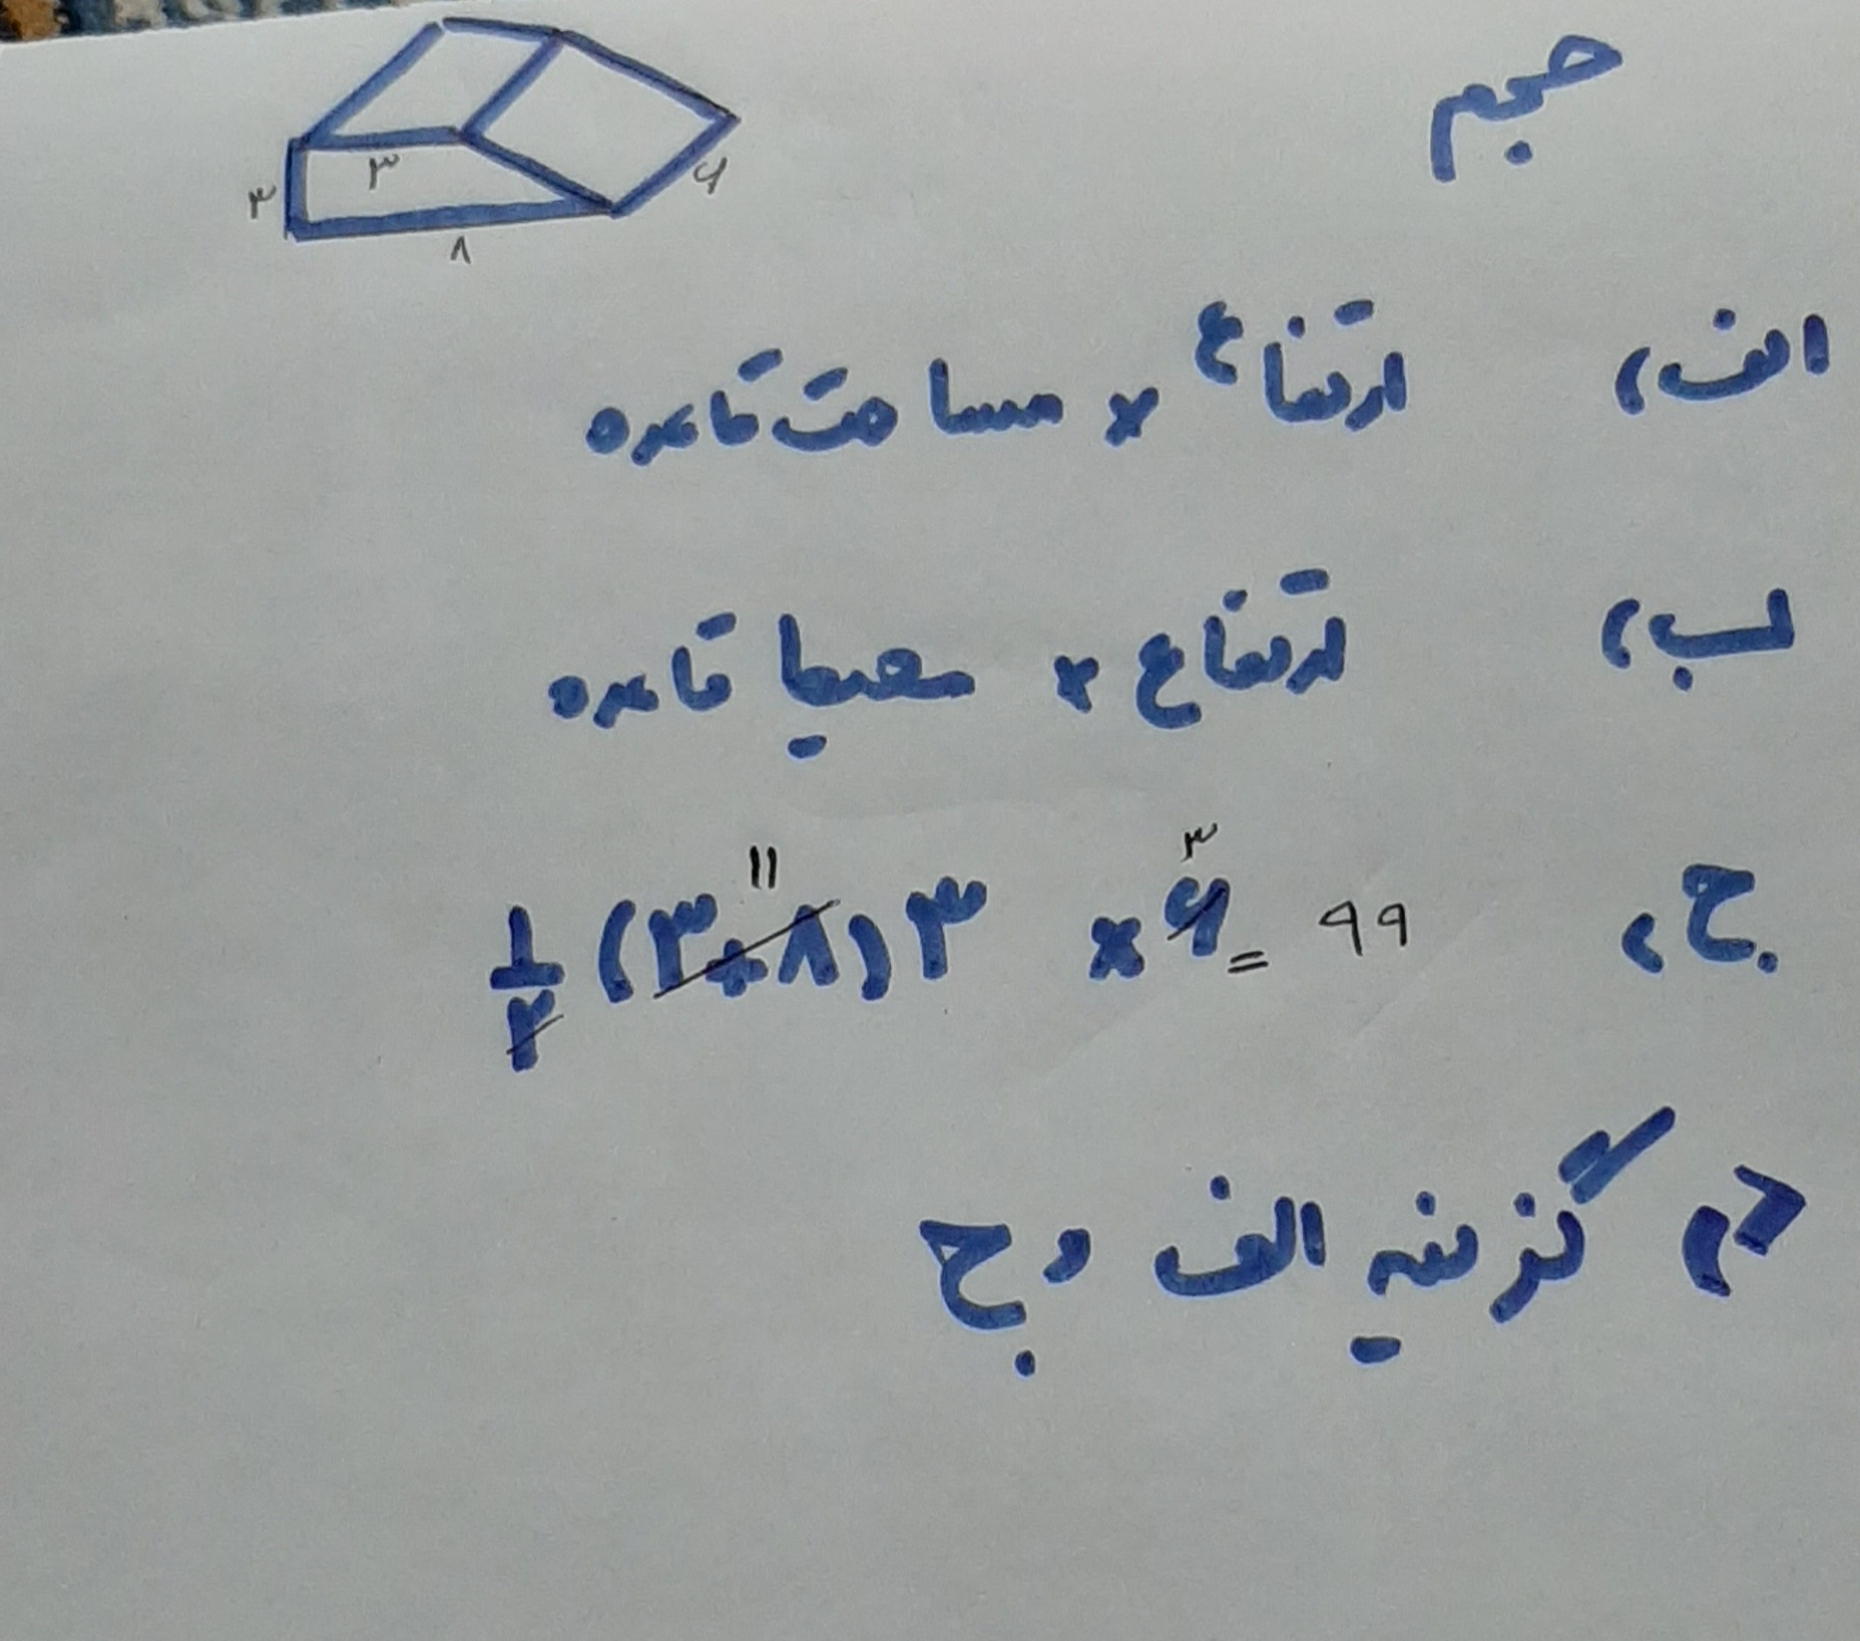 حجم
۳
۳
۶
۸
الف، ارتفاع × مساحت قاعده
ب، ارتفاع × محیط قاعده
ج، ½ (۳+۸) ۳ × ۶ = ۹۹
۱۱
۳
د، گزینه الف و ج